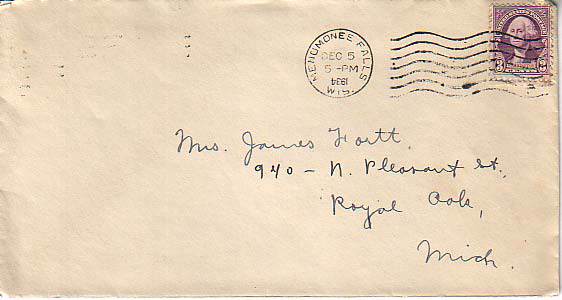 MENOMONEE FALLS
DEC 5
5 - PM
1934
WIS.
3 3
Mrs. James Fortt.
940 - N. Pleasant St.,
Royal Oak,
Mich.